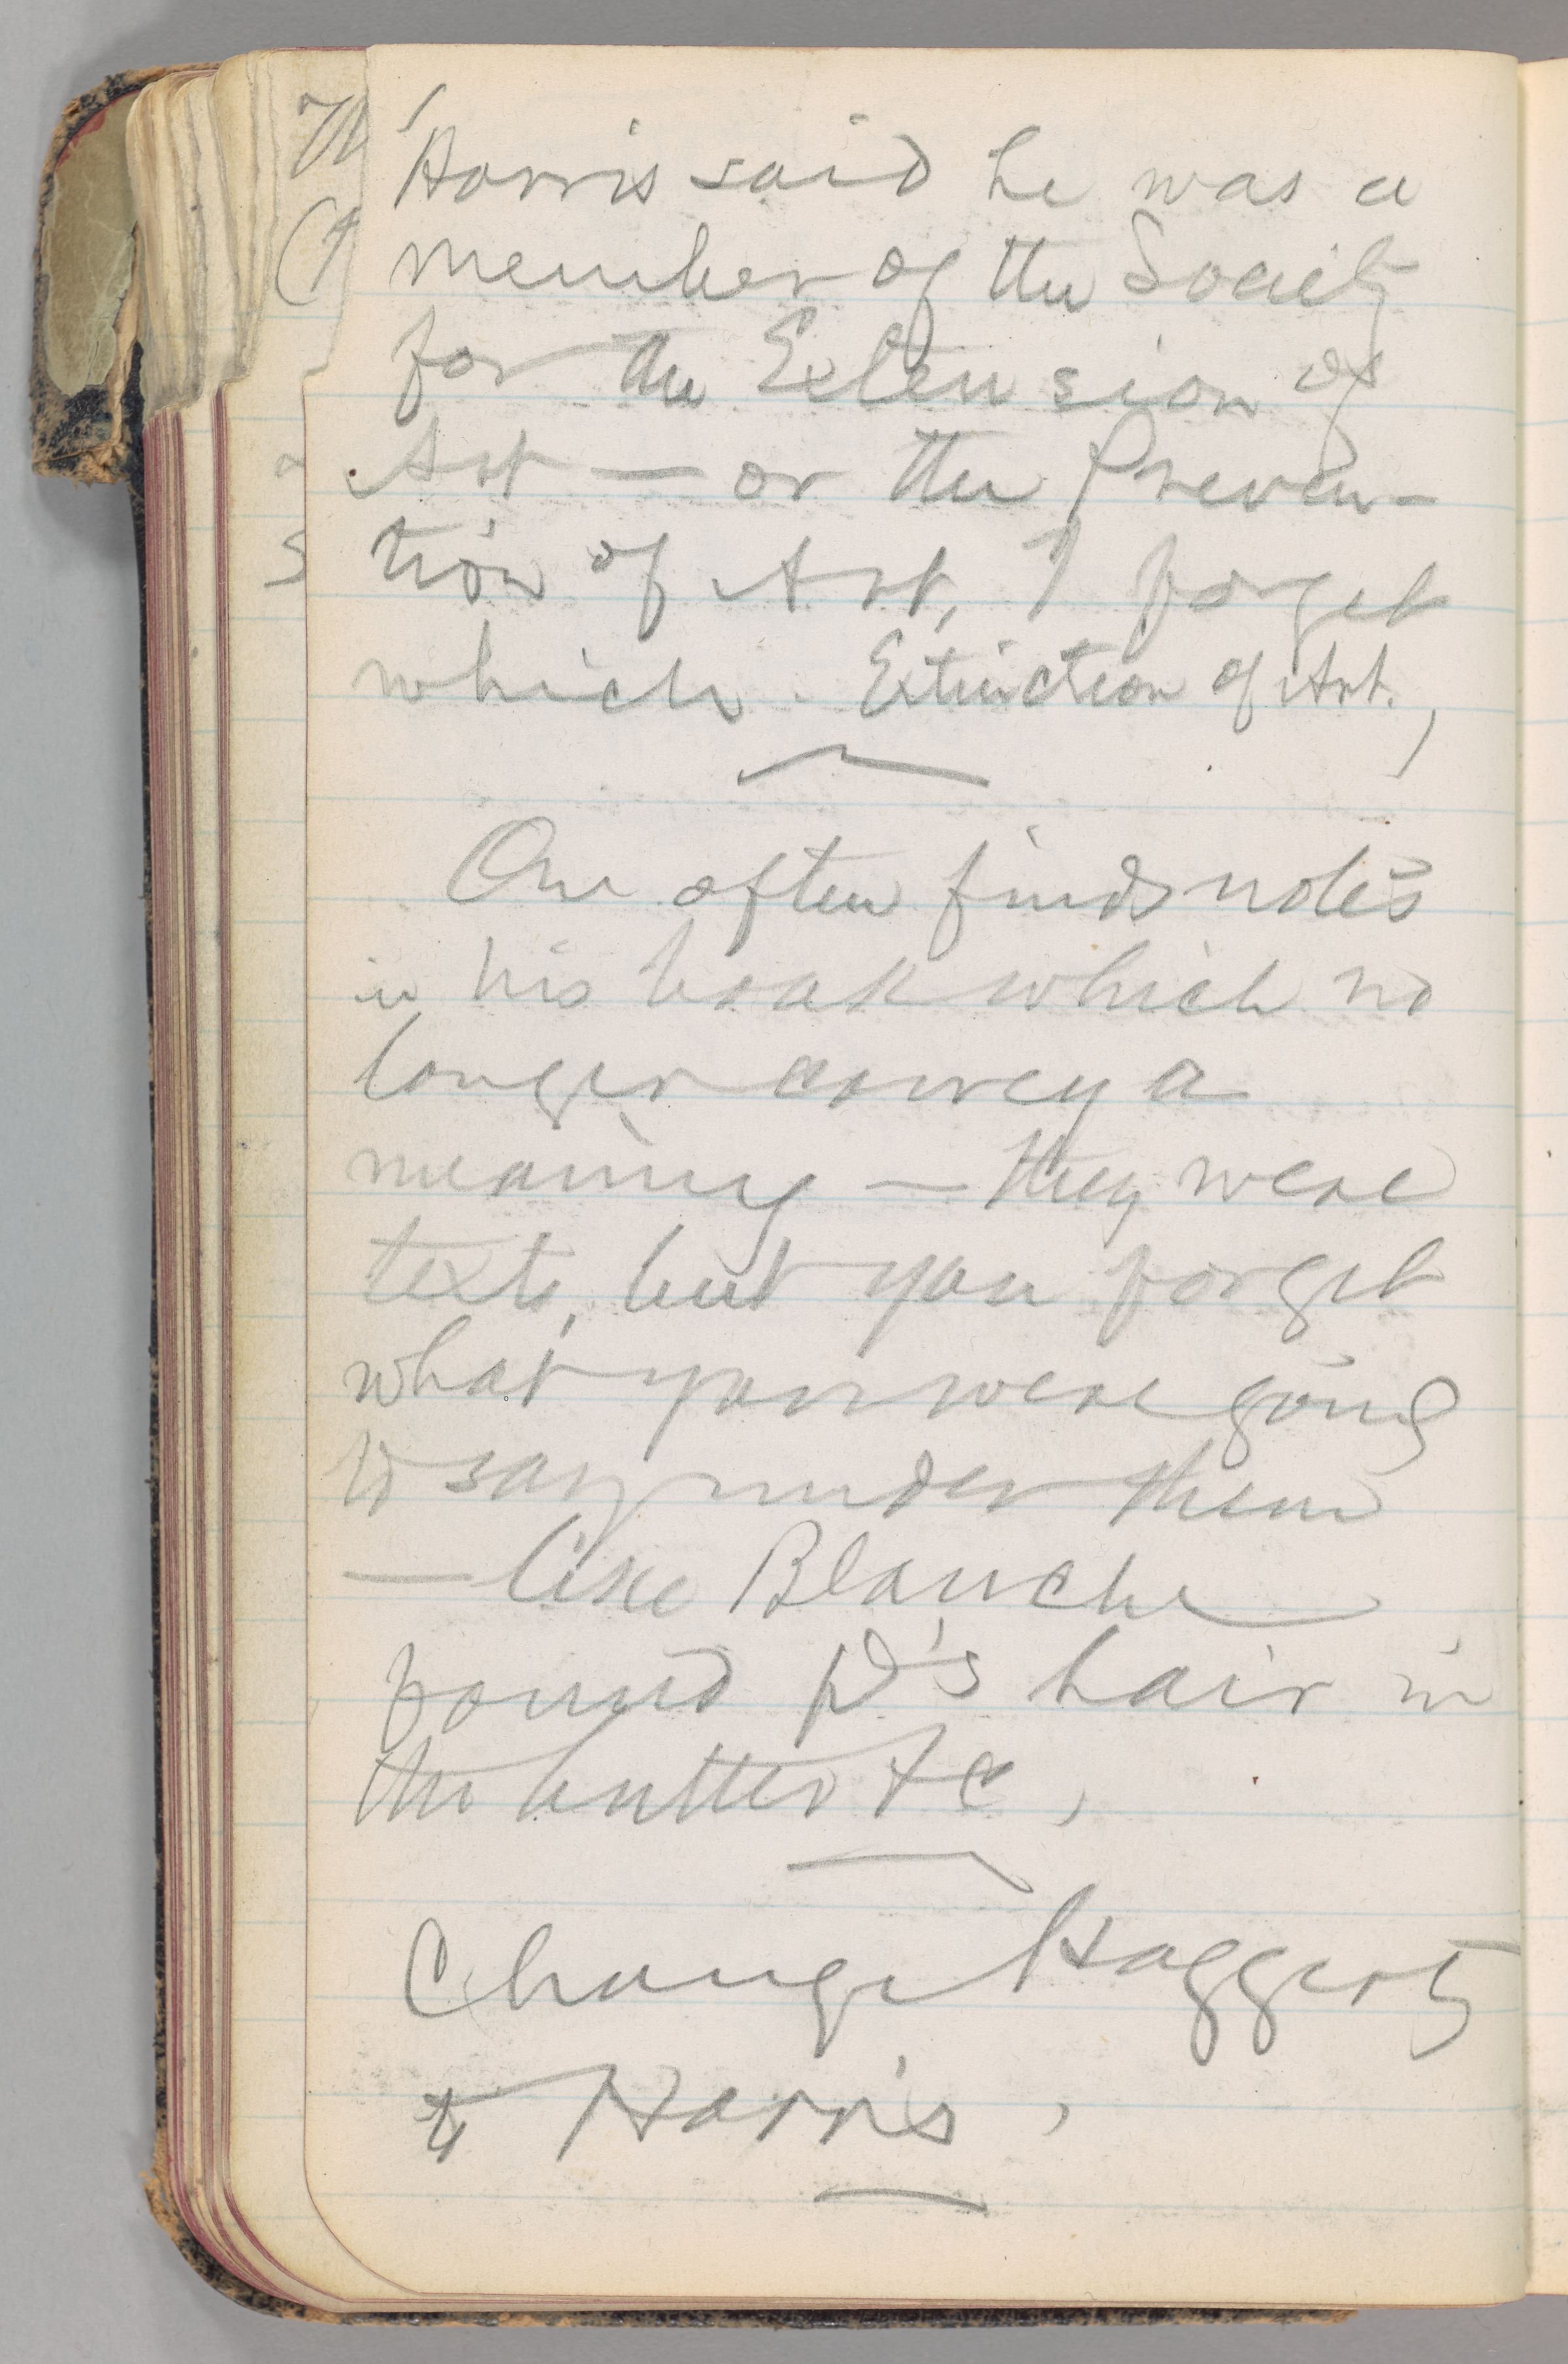 Harris said he was a
member of the Society
for the Extension of
Art — or the Preven-
tion of Art, I forget
which. Extinction of Art.
One often finds notes
in his book which no
longer convey a
meaning — they were
texts, but you forget
what you were going
to say under them
— like Blanche
found D's hair in
the butter &c,
Change Haggerty
to Harris.